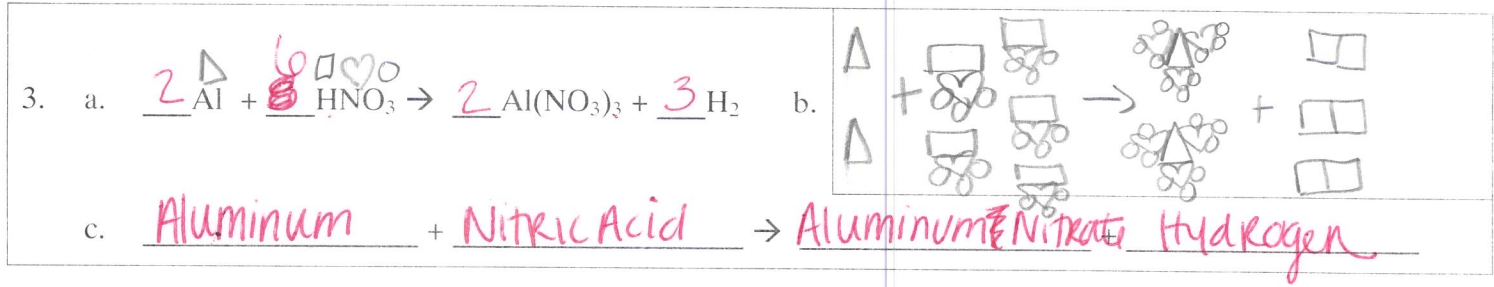 3. a. 2 Al + 6 HNO₃ → 2 Al(NO₃)₃ + 3 H₂ b. + → +
c. Aluminum + Nitric Acid → Aluminum Nitrate + Hydrogen